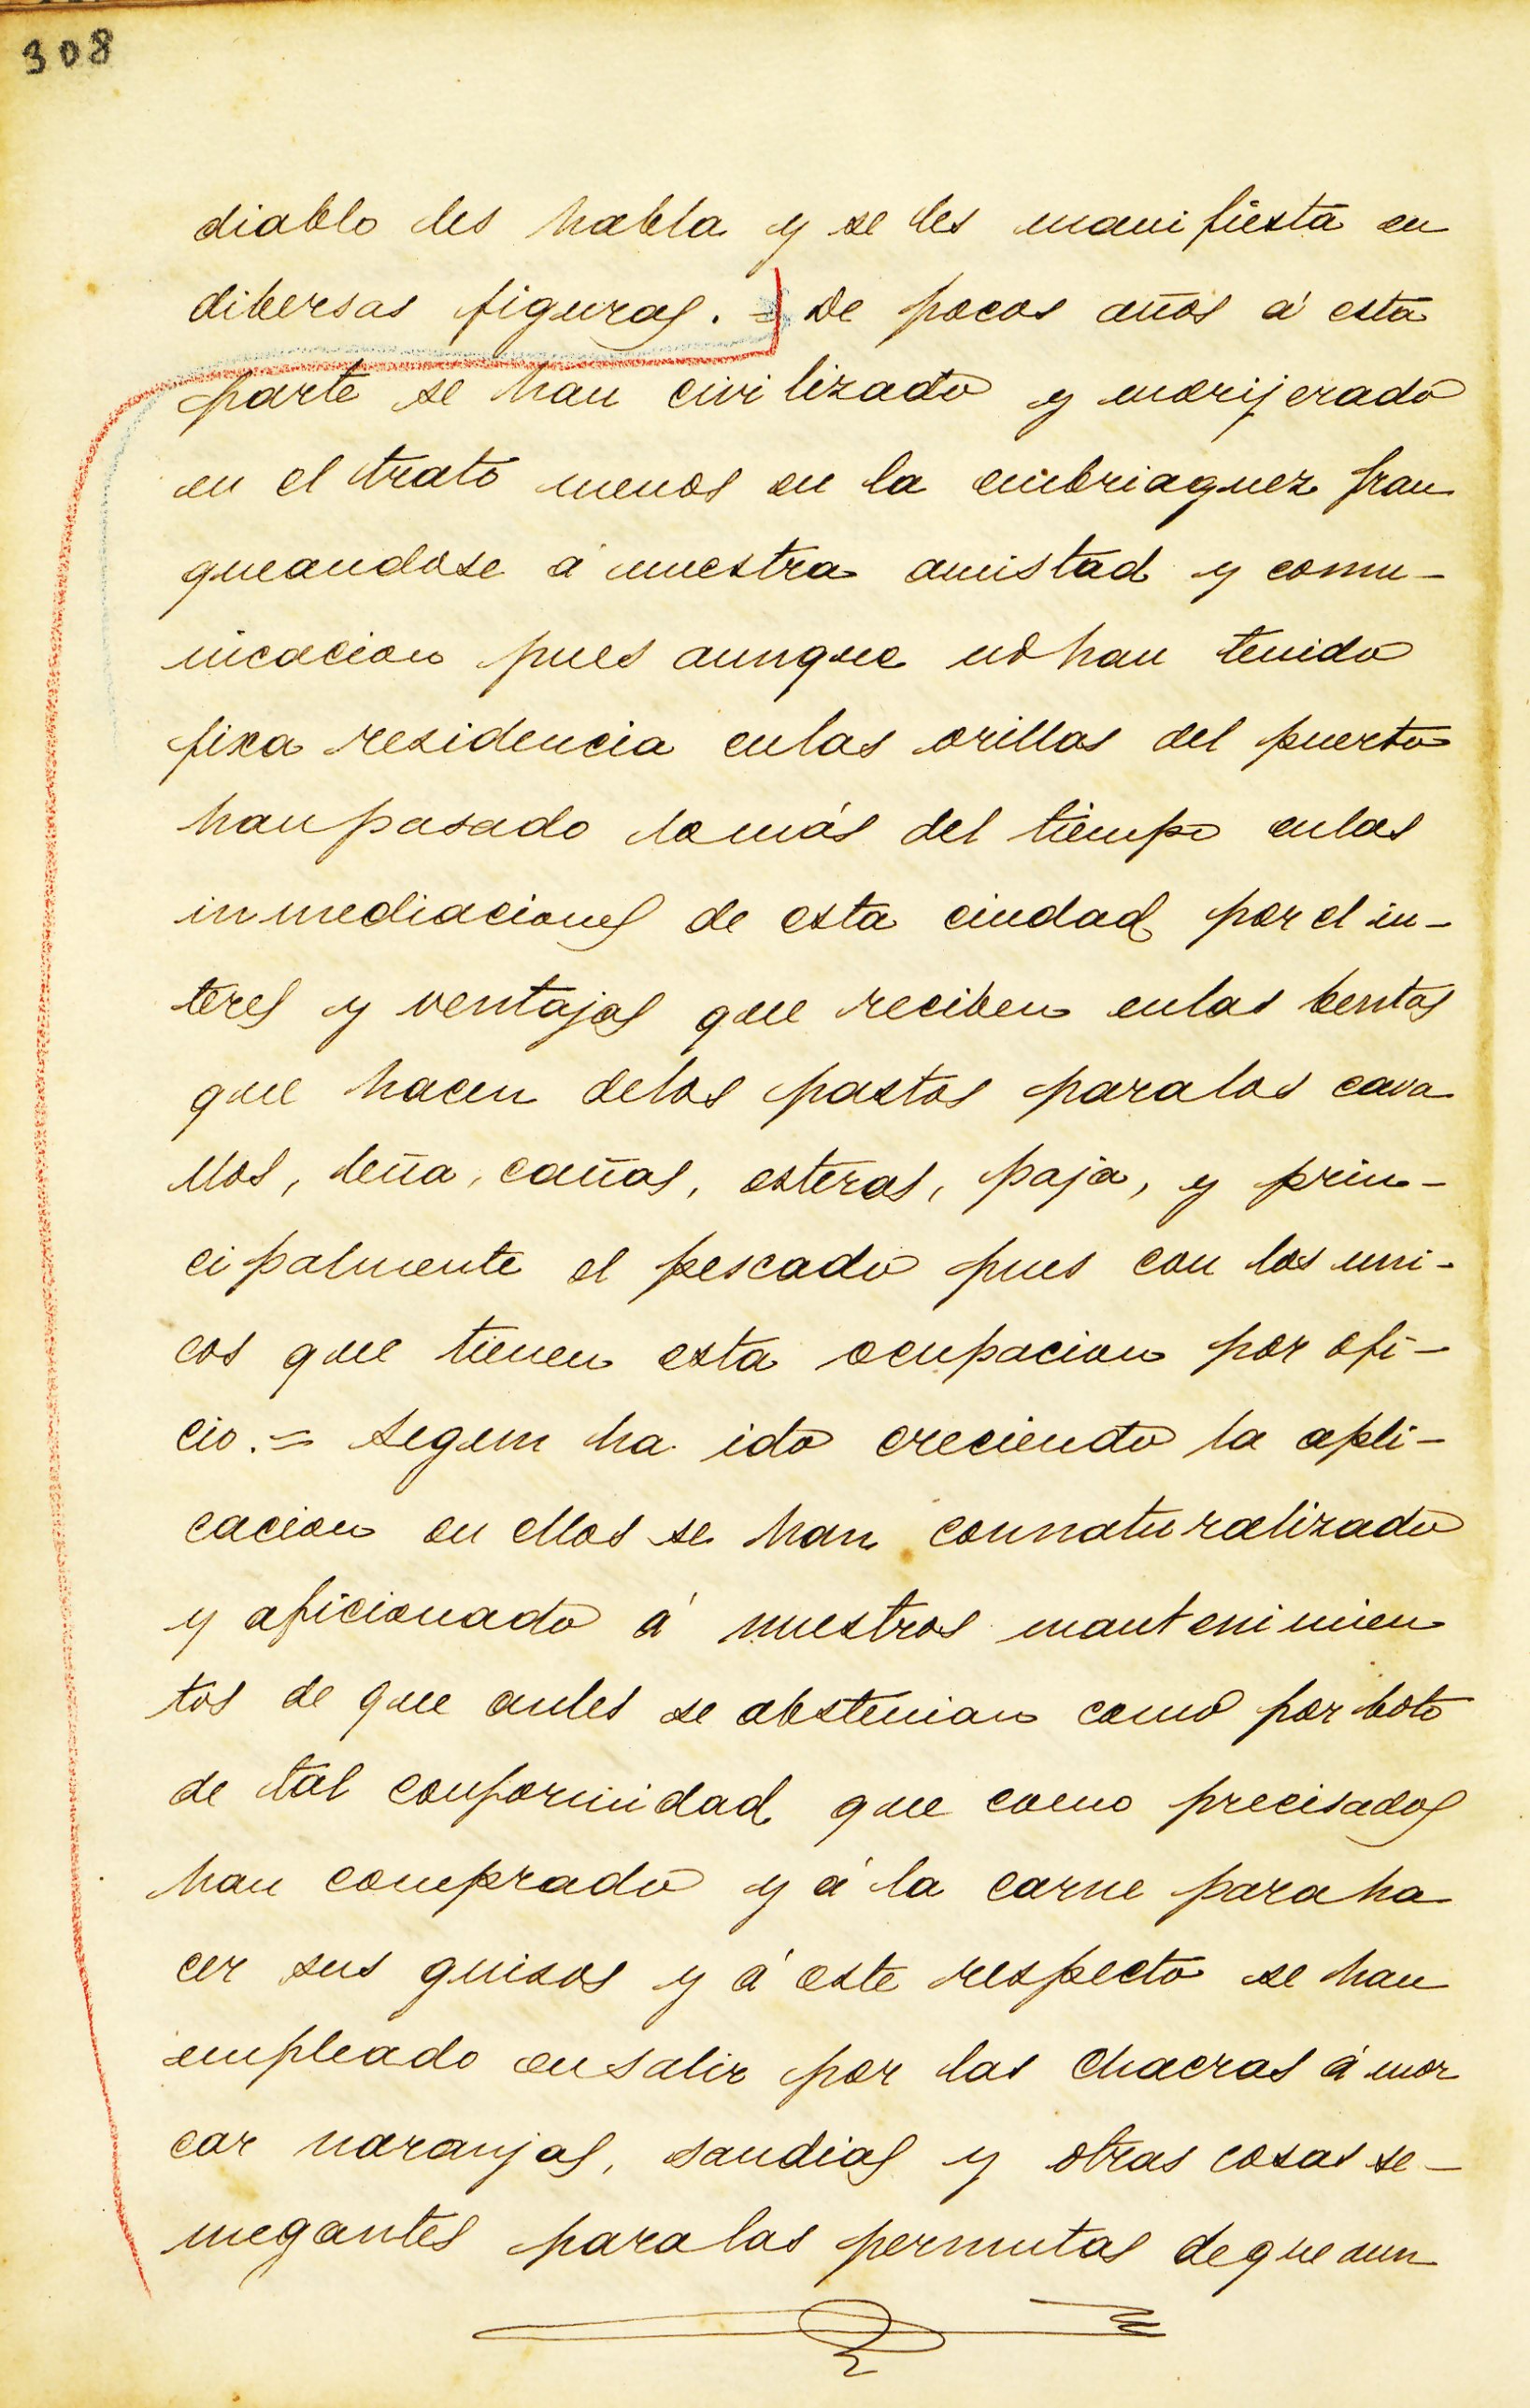 308
diablo les habla y se les manifiesta en
dibersas figuras. = De pocos años á esta
parte se han civilizado y morijerado
en el trato menos en la embriaguez fran
queandose á nuestra amistad y comu-
nicacion pues aunque no han tenido
fixa residencia enlas orillas del puerto
han pasado lo más del tiempo enlas
inmediaciones de esta ciudad por el in-
teres y ventajas que reciben enlas bentas
que hacen delos pastos paralos cava
llos, leña, cañas, esteras, paja, y prin-
cipalmente el pescado pues con los uni-
cos que tienen esta ocupacion por ofi-
cio. = Segun ha ido creciendo la apli-
cacion en ellos se han connaturalizado
y aficionado á nuestros mantenimien
tos de que antes se abstenian como por boto
de tal conformidad que como precisados
han comprado y á la carne para ha
cer sus guisos y á este respecto se han
empleado en salir por las chacras á mer
car naranjas, sandias y otras cosas se-
megantes paralas permutas de que aun